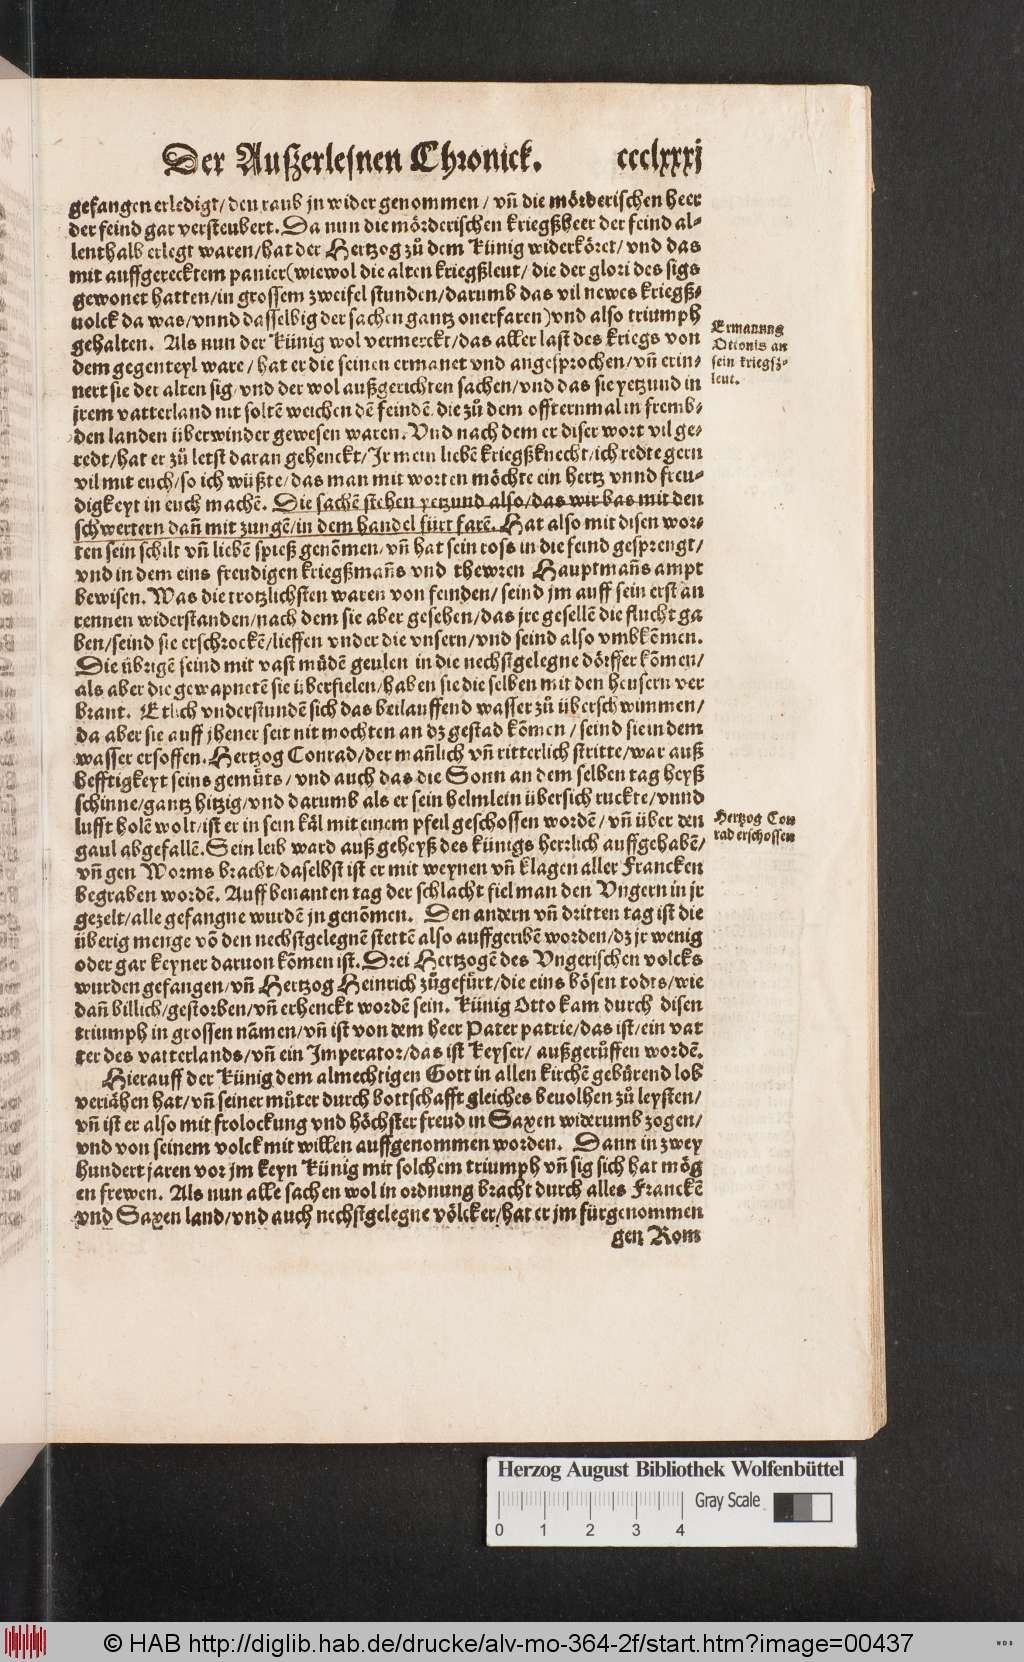 Der Außerlesnen Chronick. ccclxxxj
gefangen erledigt/ den raub jn wider genommen/ vñ die mörderischen heer
der feind gar versteubert. Da nun die mörderischen kriegßheer der feind al-
lenthalb erlegt waren/ hat der Hertzog zů dem Künig widerköret/ vnd das
mit auffgerecktem panier (wiewol die alten kriegßleut/ die der glori des sigs
gewonet hatten/ in grossem zweifel stunden/ darumb das vil newes kriegß-
uolck da was/ vnnd dasselbig der sachen gantz onerfaren) vnd also triumph
gehalten. Als nun der Künig wol vermerckt/ das aller last des kriegs von
dem gegenteyl ware/ hat er die seinen ermanet vnd angesprochen/ vñ erin-
nert sie der alten sig/ vnd der wol außgerichten sachen/ vnd das sie yetzund in
jrem vatterland nit soltē weichen dē feindē/ die zů dem offternmal in fremb-
den landen überwinder gewesen waren. Vnd nach dem er diser wort vil ge-
redt/ hat er zů letst daran gehenckt/ Ir mein liebē kriegßknecht/ ich redte gern
vil mit euch/ so ich wüßte/ das man mit worten möchte ein hertz vnnd freu-
digkeyt in euch machē. Die sachē stehen yetzund also/ das wir bas mit den
schwertern dañ mit zungē/ in dem handel fürt farē. Hat also mit disen wor-
ten sein schilt vñ liebē spieß genōmen/ vñ hat sein ross in die feind gesprengt/
vnd in dem eins freudigen kriegßmañs vnd thewren Hauptmañs ampt
bewisen. Was die trotzlichsten waren von feinden/ seind jm auff sein erst an
rennen widerstanden/ nach dem sie aber gesehen/ das jre gesellē die flucht ga
ben/ seind sie erschrockē/ lieffen vnder die vnsern/ vnd seind also vmbkōmen.
Die übrigē seind mit vast müdē geulen in die nechstgelegne dörffer kōmen/
als aber die gewapnetē sie überfielen/ haben sie die selben mit den heusern ver
brant. Etlich vnderstundē sich das beilauffend wasser zů überschwimmen/
da aber sie auff jhener seit nit mochten an dz gestad kōmen/ seind sie in dem
wasser ersoffen. Hertzog Conrad/ der mañlich vñ ritterlich stritte/ war auß
hefftigkeyt seins gemůts/ vnd auch das die Sonn an dem selben tag heyß
schinne/ gantz hitzig/ vnd darumb als er sein helmlein übersich ruckte/ vnnd
lufft holē wolt/ ist er in sein käl mit einem pfeil geschossen wordē/ vñ über den
gaul abgefallē. Sein leib ward auß geheyß des künigs herrlich auffgehabē/
vñ gen Worms bracht/ daselbst ist er mit weynen vñ klagen aller Francken
begraben wordē. Auff benanten tag der schlacht fiel man den Vngern in jr
gezelt/ alle gefangne wurdē jn genōmen. Den andern vñ dritten tag ist die
überig menge vō den nechstgelegnē stettē also auffgeribē worden/ dz jr wenig
oder gar keyner daruon kōmen ist. Drei Hertzogē des Vngerischen volcks
wurden gefangen/ vñ Hertzog Heinrich zůgefürt/ die eins bösen todts/ wie
dañ billich/ gestorben/ vñ erhenckt wordē sein. Künig Otto kam durch disen
triumph in grossen nāmen/ vñ ist von dem heer Pater patrie/ das ist/ ein vat
ter des vatterlands/ vñ ein Imperator/ das ist Keyser/ außgerůffen wordē.
Hierauff der Künig dem almechtigen Gott in allen kirchē gebürend lob
veriähen hat/ vñ seiner můter durch bottschafft gleiches beuolhen zů leysten/
vñ ist er also mit frolockung vnd höchster freud in Saxen widerumb zogen/
vnd von seinem volck mit willen auffgenommen worden. Dann in zwey
hundert jaren vor jm keyn Künig mit solchem triumph vñ sig sich hat mög
en frewen. Als nun alle sachen wol in ordnung bracht durch alles Franckē
vnd Saxen land/ vnd auch nechstgelegne völcker/ hat er jm fürgenommen
gen Rom
Ermanung
Ottonis an
sein kriegß-
leut.
Hertzog Con
rad erschossen
Herzog August Bibliothek Wolfenbüttel
Gray Scale
0 1 2 3 4
© HAB http://diglib.hab.de/drucke/alv-mo-364-2f/start.htm?image=00437